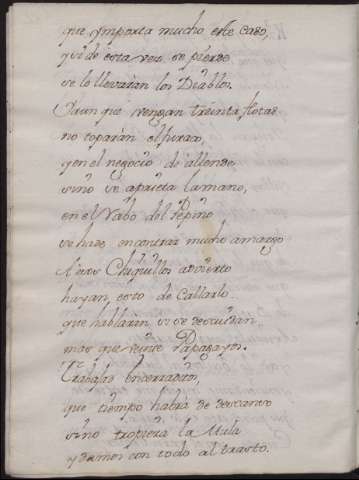 que ymporta mucho este caso,
y si de esta vez se pierde
se lo llevarán los Diablos.
Y aun que vengan treinta flotas
no toparán el
y en el negocio de allende
sino se aprieta la mano,
en el Rabo del Pepino
se hade encontrar mucho amargo
A esos Chiquillos advierto
hayan esto de Callarlo
que hablarán si se descuidan
mas que veinte Papagayos.
Trabajar encerraditos,
que tiempo habrá de descanso
sino tropieza la Mula
y damos con todo al trasto.